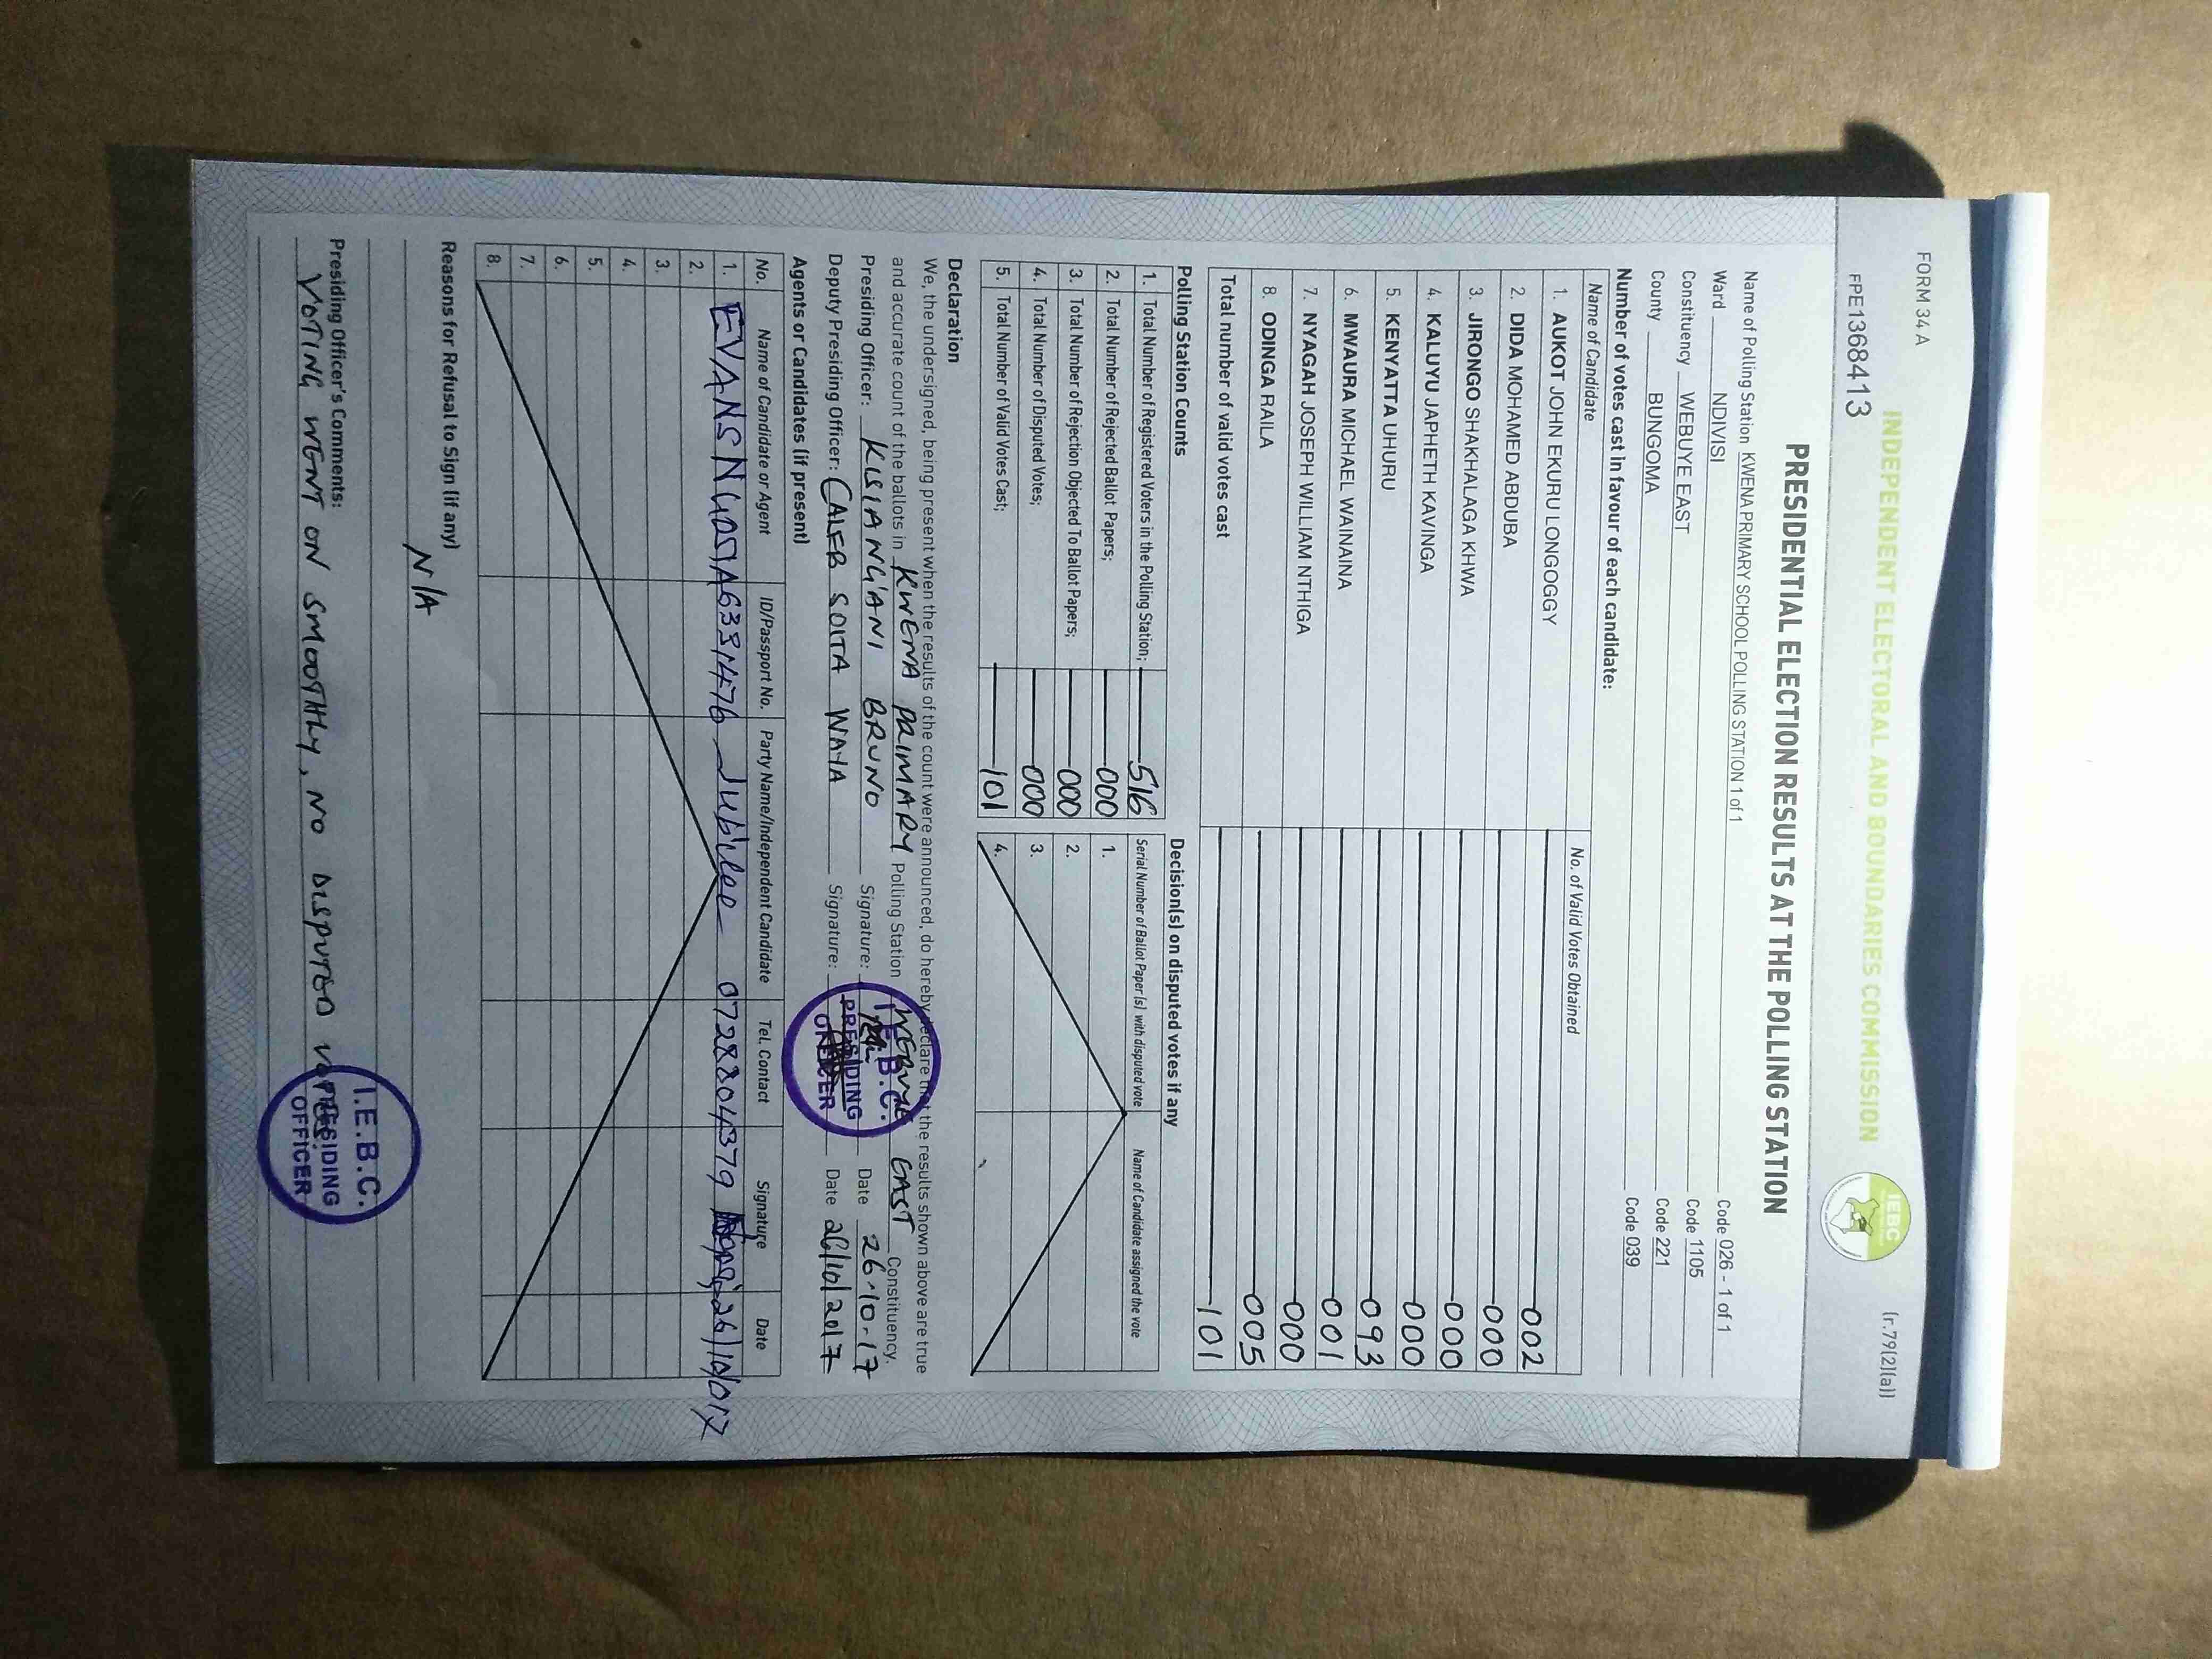 FORM 34 A
(r.79(2)(a))
INDEPENDENT ELECTORAL AND BOUNDARIES COMMISSION
IEBC
FPE1368413
PRESIDENTIAL ELECTION RESULTS AT THE POLLING STATION
Name of Polling Station KWENA PRIMARY SCHOOL POLLING STATION 1 of 1 Code 026 - 1 of 1
Ward NDIVISI Code 1105
Constituency WEBUYE EAST Code 221
County BUNGOMA Code 039
Number of votes cast in favour of each candidate:
Name of Candidate No. of Valid Votes Obtained
1. AUKOT JOHN EKURU LONGOGGY 002
2. DIDA MOHAMED ABDUBA 000
3. JIRONGO SHAKHALAGA KHWA 000
4. KALUYU JAPHETH KAVINGA 000
5. KENYATTA UHURU 093
6. MWAURA MICHAEL WAINAINA 001
7. NYAGAH JOSEPH WILLIAM NTHIGA 000
8. ODINGA RAILA 005
Total number of valid votes cast 101
Polling Station Counts
1. Total Number of Registered Voters in the Polling Station; 516
2. Total Number of Rejected Ballot Papers; 000
3. Total Number of Rejection Objected To Ballot Papers; 000
4. Total Number of Disputed Votes; 000
5. Total Number of Valid Votes Cast; 101
Decision(s) on disputed votes if any
Serial Number of Ballot Paper (s) with disputed vote Name of Candidate assigned the vote
1.
2.
3.
4.
Declaration
We, the undersigned, being present when the results of the count were announced, do hereby declare that the results shown above are true
and accurate count of the ballots in KWENA PRIMARY Polling Station WEBUYE EAST Constituency.
Presiding Officer: KISIANG'ANI BRUNO Signature: Date 26.10.17
Deputy Presiding Officer: CALEB SOITA WAYA Signature: Date 26/10/2017
I.E.B.C.
PRESIDING
OFFICER
Agents or Candidates (if present)
No. Name of Candidate or Agent ID/Passport No. Party Name/Independent Candidate Tel. Contact Signature Date
1. EVANS Jubilee 0728804379
2.
3.
4.
5.
6.
7.
8.
Reasons for Refusal to Sign (if any)
N/A
Presiding Officer's Comments:
VOTING WENT ON SMOOTHLY, NO DISPUTED VOTES
I.E.B.C.
PRESIDING
OFFICER